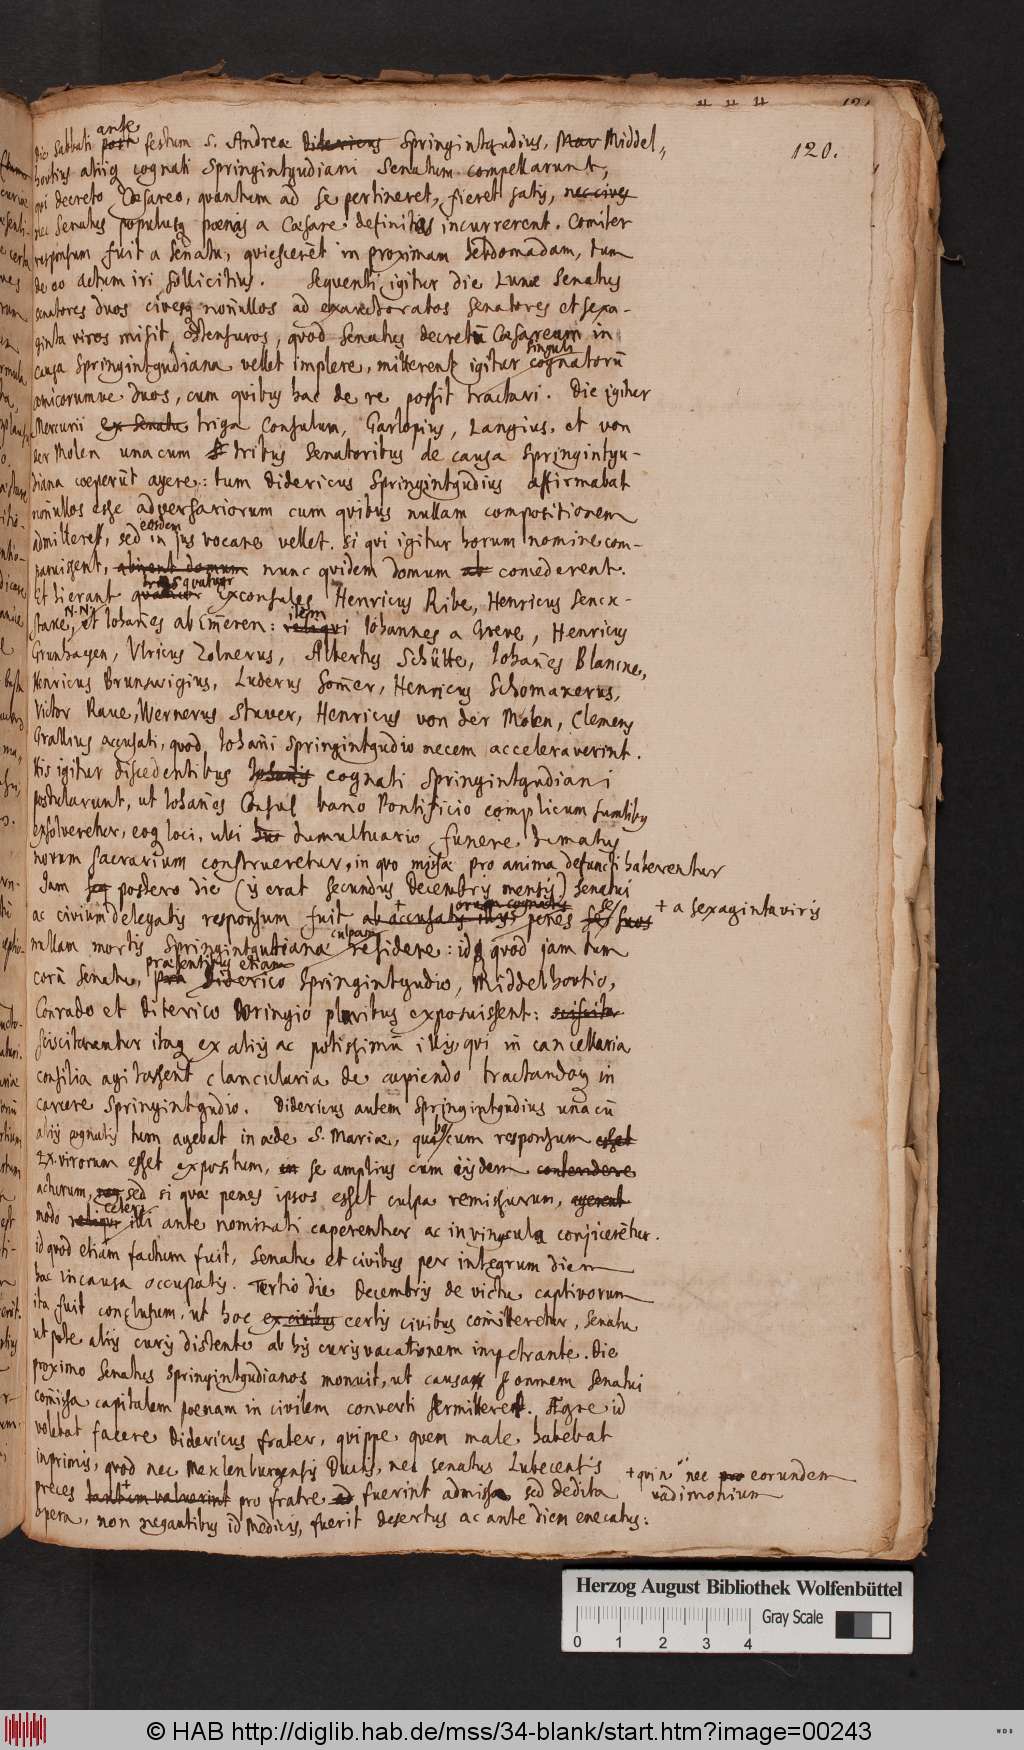 120.
die Sabbati ante post festum S. Andreæ Didericus Springintgudius, Mav Middel„
hovtius aliiq cognati Springintgudiani Senatum compellarunt,
qui decreto Cæsareo, quantum ad se pertineret, fieret satis, nec cives
nec Senatus populusq poenas a Cæsare definitas incurrerent. Comiter
responsum fuit a Senatu, quiescerēt in proximam hebdomadam, tum
de eo actum iri sollicitius. Sequenti igitur die Lunæ Senatus
senatores duos civesq nonnullos ad exauctoratos senatores et sexa-
ginta viros misit, ostensuros, quod Senatus decretū Cæsareum in
causa Springintgudiana vellet implere, mitterent igitur singuli cognatorū
amicorumve duos, cum quibus hac de re possit tractari. Die igitur
Mercurii ex Senatu triga Consulum, Garlopius, Langius, et von
der Molen una cum tribus Senatoribus de causa Springintgu-
diana coeperūt agere: tum Didericus Springintgudius affirmabat
nonnullos esse adversariorum cum quibus nullam compositionem
admitteret, sed eosdem in jus vocare vellet. Si qui igitur horum nomine com-
paruissent, abirent domum nunc quidem domum ab concederent.
Et hi erant quatuor tres quatuor Exconsules Henricus Ribe, Henricus Senck-
stake, N. N. et Johañes ab Em̄eren: reliqui item Johannes a Greve, Henricus
Grunhagen, Ulricus Zolnerus, Albertus Schütte, Johañes Blancke,
Henricus Brunswigius, Luderus Som̄er, Henricus Schomakerus,
Victor Rave, Wernerus Stuver, Henricus von der Molen, Clemens
Grallius accusati, quod Johañi Springintgudio necem acceleraverint.
His igitur discedentibus Johañis cognati Springintgudiani
postularunt, ut Johañes Consul banno Pontificio complicum sumtibus
exsolveretur, eoq loci, ubi hus tumultuario funere humatus
novum sacrarium construeretur, in quo missæ pro anima defuncti haberentur
Jam postero die (is erat secundus Decembris mensis) Senatui
ac civium delegatis responsum fuit ab accusatis illis + eorum cognatis penes se suos
+ a sexaginta viris
nullam mortis Springintgudianæ culpam residere: idq quod jam tum
corā Senatu, præsentibus etiam Diderico Springintgudio, Middelhovtio,
Conrado et Diterico Döringio pluribus exposuissent: sciscita
Sciscitarentur itaq ex aliis ac potissimū illis, qui in cancellaria
consilia agitassent clancularia de capiendo tractandoq in
carcere Springintgudio. Didericus autem Springintgudius unacū
aliis cognatis tum agebat in æde S. Mariæ, quibus cum responsum esset
LX. virorum esset expositum, in se amplius cum iisdem contendere
acturum, non sed si quæ penes ipsos esset culpa remissurum, agerent
modo reliqui ceteri illi ante nominati caperentur ac in vincula conjicerētur.
id quod etiam factum fuit, Senatu et civibus per integrum diem
hac in causa occupatis. Tertio die Decembris de victu captivorum
ita fuit conclusum, ut hoc ex civibus certis civibus com̄itteretur, Senatu
ut pote aliis curis distento ab his curis vacationem impetrante. Die
proximo Senatus Springintgudianos monuit, ut causam so̅ntem Senatui
com̄issa capitalem poenam in civilem converti permitterent. Ægre id
volebat facere Didericus frater, quippe quem male habebat
inprimis, quod nec Meklenburgensis Ducis, nec senatus Lubecensis
preces tantum valuerint + pro fratre ad fuerint admissæ sed dedita
+ quin nec pro eorundem
vadimonium
opera, non negantibus id Medicis, fuerit desertus ac ante diem enecatus:
Herzog August Bibliothek Wolfenbüttel
0 1 2 3 4
Gray Scale
© HAB http://diglib.hab.de/mss/34-blank/start.htm?image=00243